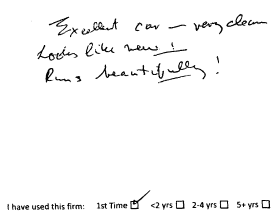 Excellent car — very clean
Looks like new!
Runs beautifully!
I have used this firm: 1st Time ☑ <2 yrs ☐ 2-4 yrs ☐ 5+ yrs ☐